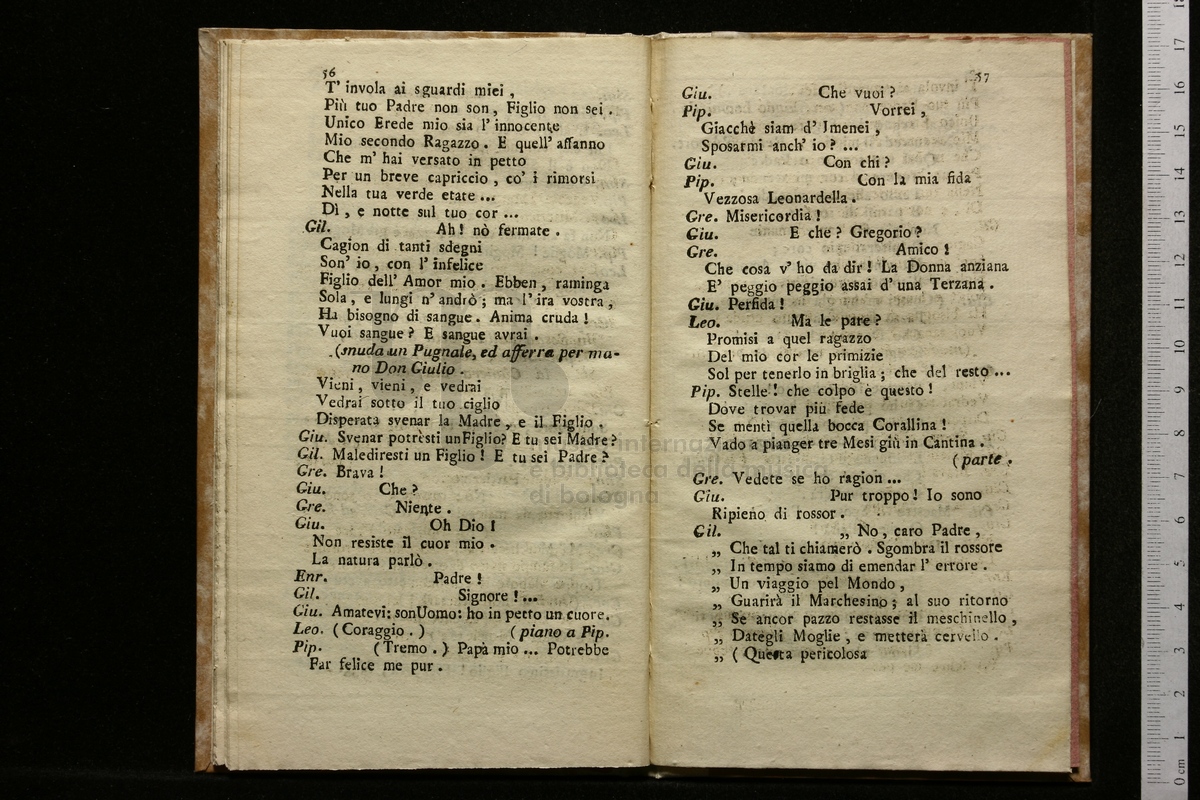 56
T' invola ai sguardi miei ,
Più tuo Padre non son , Figlio non sei .
Unico Erede mio sia l' innocente
Mio secondo Ragazzo . E quell' affanno
Che m' hai versato in petto
Per un breve capriccio , co' i rimorsi
Nella tua verde etate ...
Dì , e notte sul tuo cor ...
Gil. Ah ! nò fermate .
Cagion di tanti sdegni
Son' io , con l' infelice
Figlio dell' Amor mio . Ebben , raminga
Sola , e lungi n' andrò ; ma l' ira vostra ,
Ha bisogno di sangue . Anima cruda !
Vuoi sangue ? E sangue avrai .
(snuda un Pugnale, ed afferra per ma-
no Don Giulio .
Vieni , vieni , e vedrai
Vedrai sotto il tuo ciglio
Disperata svenar la Madre , e il Figlio .
Giu. Svenar potrèsti un Figlio? E tu sei Madre ?
Gil. Malediresti un Figlio ! E tu sei Padre ?
Gre. Brava !
Giu. Che ?
Gre. Niente .
Giu. Oh Dio !
Non resiste il cuor mio .
La natura parlò .
Enr. Padre !
Gil. Signore ! ...
Giu. Amatevi: son Uomo: ho in petto un cuore.
Leo. ( Coraggio . ) ( piano a Pip.
Pip. ( Tremo . ) Papà mio ... Potrebbe
Far felice me pur .
57
Giu. Che vuoi ?
Pip. Vorrei ,
Giacchè siam d' Imenei ,
Sposarmi anch' io ? ...
Giu. Con chi ?
Pip. Con la mia fida
Vezzosa Leonardella .
Gre. Misericordia !
Giu. E che ? Gregorio ?
Gre. Amico !
Che cosa v' ho da dir ! La Donna anziana
E' peggio peggio assai d' una Terzana .
Giu. Perfida !
Leo. Ma le pare ?
Promisi a quel ragazzo
Del mio cor le primizie
Sol per tenerlo in briglia ; che del resto ...
Pip. Stelle ! che colpo è questo !
Dove trovar più fede
Se mentì quella bocca Corallina !
Vado a pianger tre Mesi giù in Cantina .
( parte .
Gre. Vedete se ho ragion ...
Giu. Pur troppo ! Io sono
Ripieno di rossor .
Gil. „ No , caro Padre ,
„ Che tal ti chiamerò . Sgombra il rossore
„ In tempo siamo di emendar l' errore .
„ Un viaggio pel Mondo ,
„ Guarirà il Marchesino ; al suo ritorno
„ Se ancor pazzo restasse il meschinello ,
„ Dategli Moglie , e metterà cervello .
„ ( Questa pericolosa
internaz
e biblioteca della musica
di bologna
0 cm 1 2 3 4 5 6 7 8 9 10 11 12 13 14 15 16 17 18